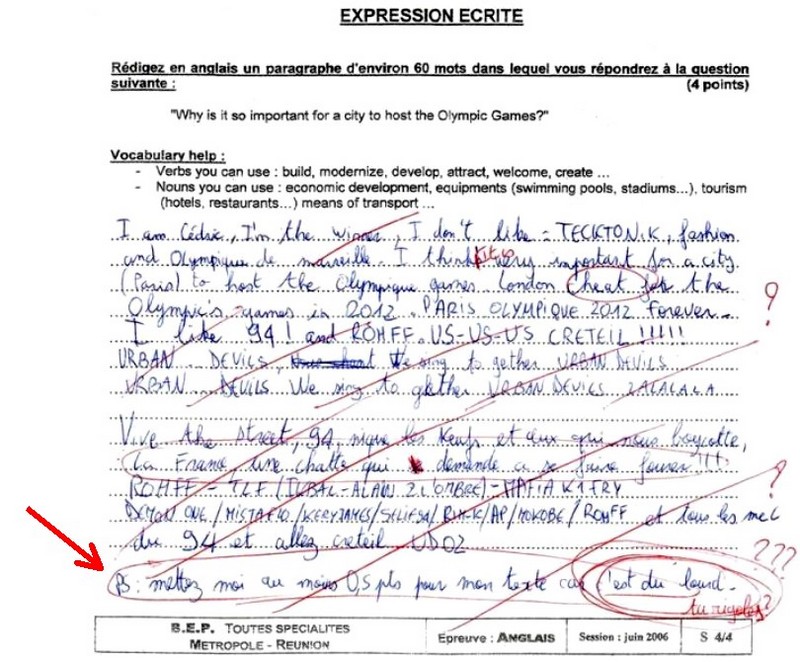 EXPRESSION ECRITE
Rédigez en anglais un paragraphe d'environ 60 mots dans lequel vous répondrez à la question
suivante : (4 points)
"Why is it so important for a city to host the Olympic Games?"
Vocabulary help :
- Verbs you can use : build, modernize, develop, attract, welcome, create ...
- Nouns you can use : economic development, equipments (swimming pools, stadiums...), tourism
(hotels, restaurants...) means of transport ...
I am Cédric, I'm the winner, I don't like = TECKTONIK, fashion
and Olympique de marseille. I think it is very important for a city
(Paris) to host the Olympique games London Cheat for the
Olympic's games in 2012. PARIS OLYMPIQUE 2012 Forever ?
I like 94 ! and ROHFF. US-US-US CRETEIL !!!!!
URBAN DEVILS, We sing to gether URBAN DEVILS
URBAN DEVILS We sing to gether URBAN DEVILS LALALALA
Vive the street, 94, nique les keufs et ceux qui nous boycotte,
La France, une chatte qui demande a se faire !!!
ROHFF - TLF (IKBAL-ALAIN 2 L'OMBRE) - MAFIA K1 FRY ?
DEMON ONE / MISTA FLO / KERY JAMES / SELIFSA / RIM-K / AP / MOKOBE / ROHFF et tous les mec
du 94 et allez creteil UDO2 ???
PS : mettez moi au moins 0,5 pts pour mon texte car c'est du lourd.
tu rigoles ?
B.E.P. TOUTES SPECIALITES
METROPOLE - REUNION
Epreuve : ANGLAIS
Session : juin 2006
S 4/4